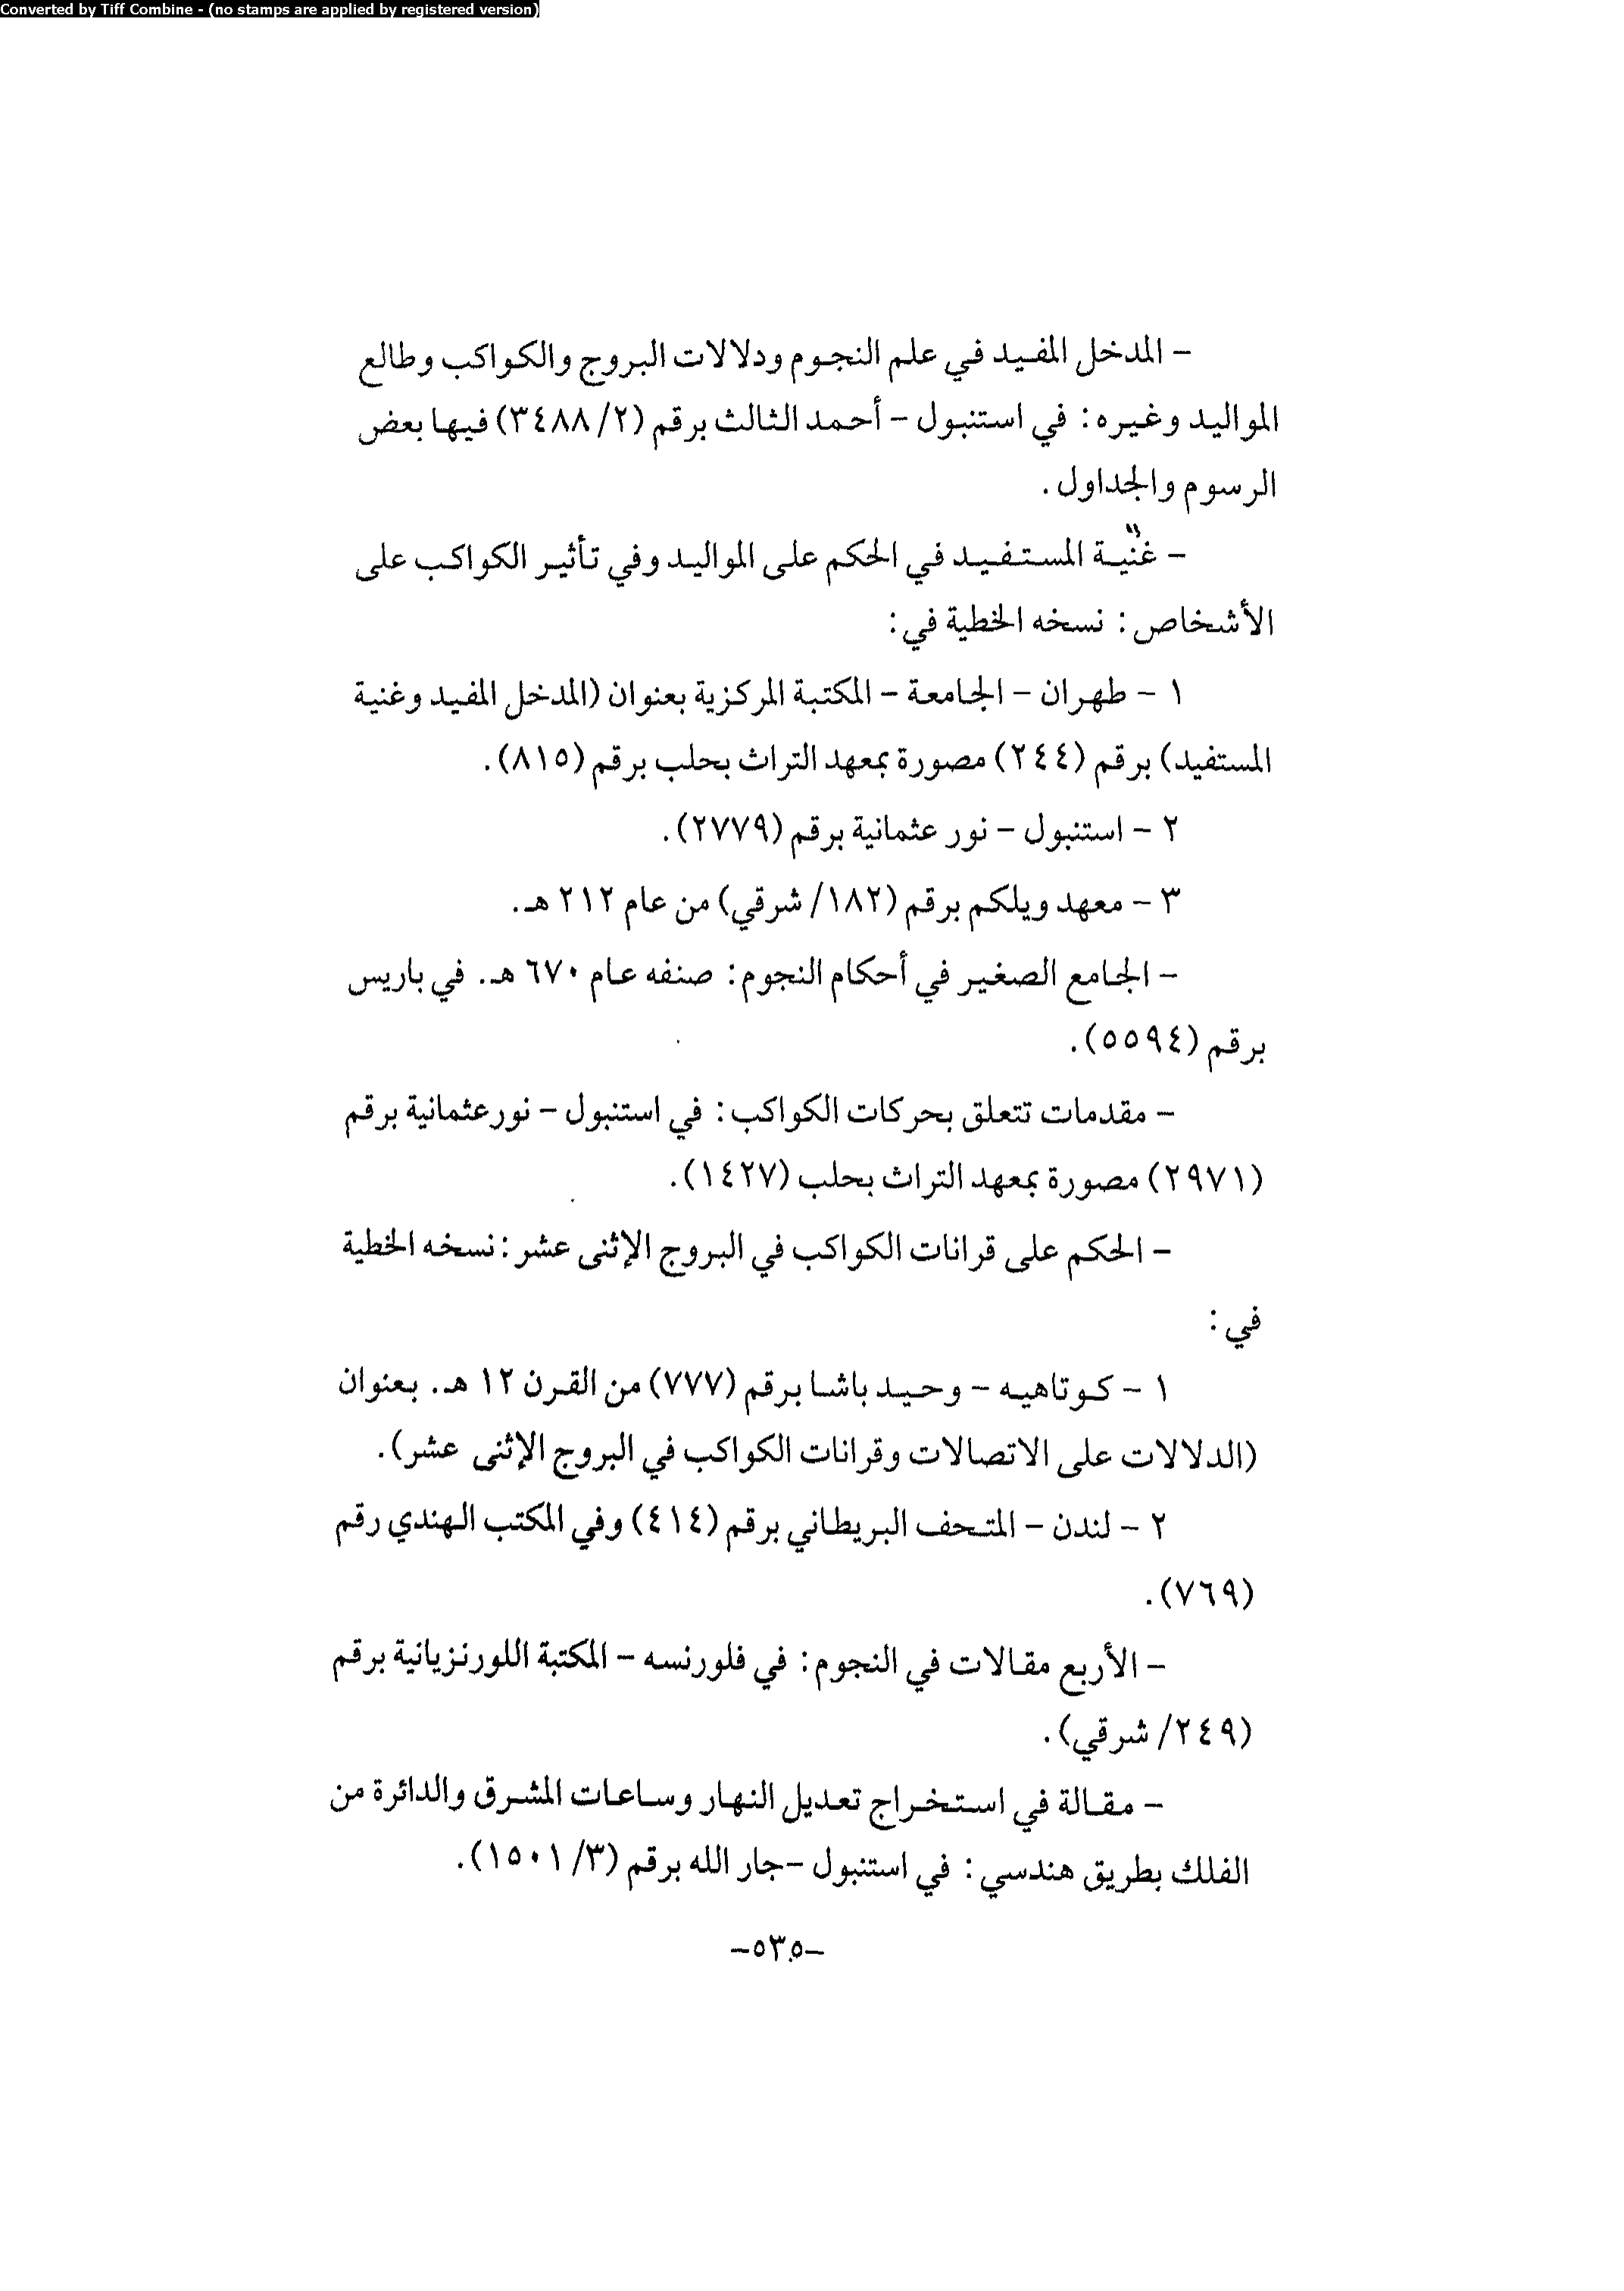 Converted by Tiff Combine - (no stamps are applied by registered version)
- المدخل المفيد في علم النجوم ودلالات البروج والكواكب وطالع
المواليد وغيره: في استنبول - أحمد الثالث برقم (٣٤٨٨/٢) فيها بعض
الرسوم والجداول.
- غنّية المستفيد في الحكم على المواليد وفي تأثير الكواكب على
الأشخاص: نسخه الخطية في:
١ - طهران - الجامعة - المكتبة المركزية بعنوان (المدخل المفيد وغنية
المستفيد) برقم (٢٤٤) مصورة بمعهد التراث بحلب برقم (٨١٥).
٢ - استنبول - نور عثمانية برقم (٢٧٧٩).
٣ - معهد ويلكم برقم (١٨٢/ شرقي) من عام ٢١٢ هـ.
- الجامع الصغير في أحكام النجوم: صنفه عام ٦٧٠ هـ. في باريس
برقم (٥٥٩٤).
- مقدمات تتعلق بحركات الكواكب: في استنبول - نورعثمانية برقم
(٢٩٧١) مصورة بمعهد التراث بحلب (١٤٢٧).
- الحكم على قرانات الكواكب في البروج الإثنى عشر: نسخه الخطية
في:
١ - كوتاهيه - وحيد باشا برقم (٧٧٧) من القرن ١٢ هـ. بعنوان
(الدلالات على الاتصالات وقرانات الكواكب في البروج الإثنى عشر).
٢ - لندن - المتحف البريطاني برقم (٤١٤) وفي المكتب الهندي رقم
(٧٦٩).
- الأربع مقالات في النجوم: في فلورنسه - المكتبة اللورنزيانية برقم
(٢٤٩/ شرقي).
- مقالة في استخراج تعديل النهار وساعات المشرق والدائرة من
الفلك بطريق هندسي: في استنبول -جار الله برقم (١٥٠١/٣).
-٥٣٥-